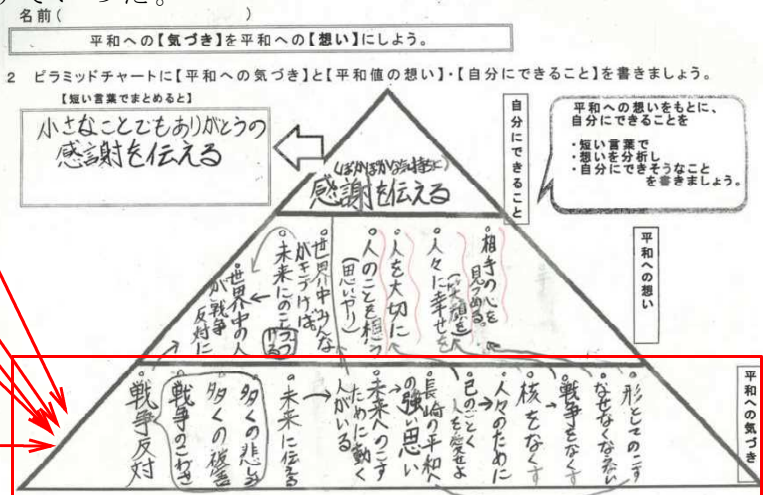 名前( )
平和への【気づき】を平和への【想い】にしよう。
2 ピラミッドチャートに【平和への気づき】と【平和値の想い】・【自分にできること】を書きましょう。
【短い言葉でまとめると】
小さなことでもありがとうの
感謝を伝える
自分にできること
平和への想いをもとに、
自分にできることを
・短い言葉で
・想いを分析し
・自分にできそうなこと
を書きましょう。
(ぽかぽかな気持ちに)
感謝を伝える
平和への想い
・相手の心を
見つめる。
・人々に幸せを
(笑顔を
・人を大切に
・人のことを想う
(思いやり)
・世界中みんな
未来にのこ
・世界中の人
が戦争
反対に
平和への気づき
・形としてのこす
・なぜなくならない
・戦争をなくす
・核をなくす
・人々のために
・己のごとく
人を愛せよ
・長崎の平和へ
の強い思い
・未来へのこす
ために動く
人がいる
・未来に伝える
・多くの悲しみ
・多くの被害
・戦争のこわさ
・戦争反対